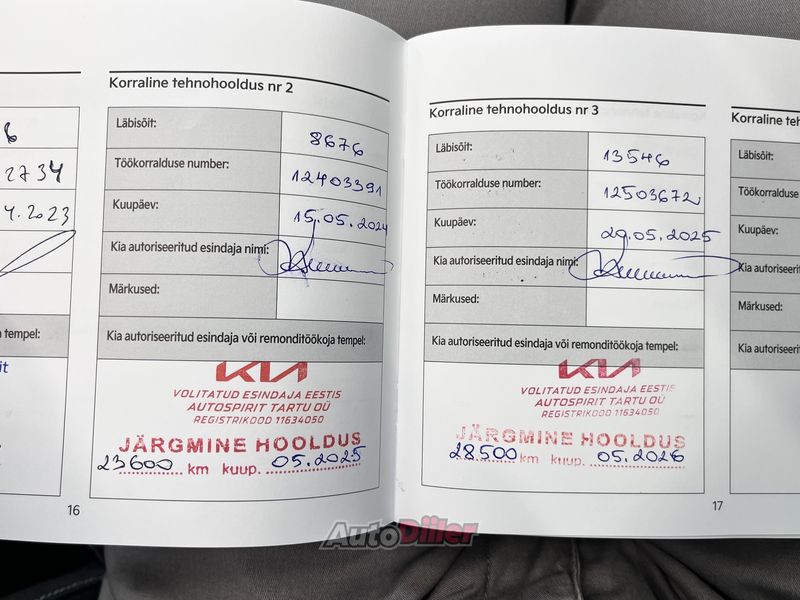 6
2734
4.2023
tempel:
it
Korraline tehnohooldus nr 2
Läbisõit: 8676
Töökorralduse number: 12403391
Kuupäev: 15.05.2024
Kia autoriseeritud esindaja nimi:
Märkused:
Kia autoriseeritud esindaja või remonditöökoja tempel:
KIA
VOLITATUD ESINDAJA EESTIS
AUTOSPIRIT TARTU OÜ
REGISTRIKOOD 11634050
JÄRGMINE HOOLDUS
23600 km kuup. 05.2025
16
Korraline tehnohooldus nr 3
Läbisõit: 13546
Töökorralduse number: 12503672
Kuupäev: 29.05.2025
Kia autoriseeritud esindaja nimi:
Märkused:
Kia autoriseeritud esindaja või remonditöökoja tempel:
KIA
VOLITATUD ESINDAJA EESTIS
AUTOSPIRIT TARTU OÜ
REGISTRIKOOD 11634050
JÄRGMINE HOOLDUS
28500 km kuup. 05.2026
17
Korraline teh
Läbisõit:
Töökorraldus
Kuupäev:
Kia autorisee
Märkused:
Kia autoriseeri
AutoDiiler